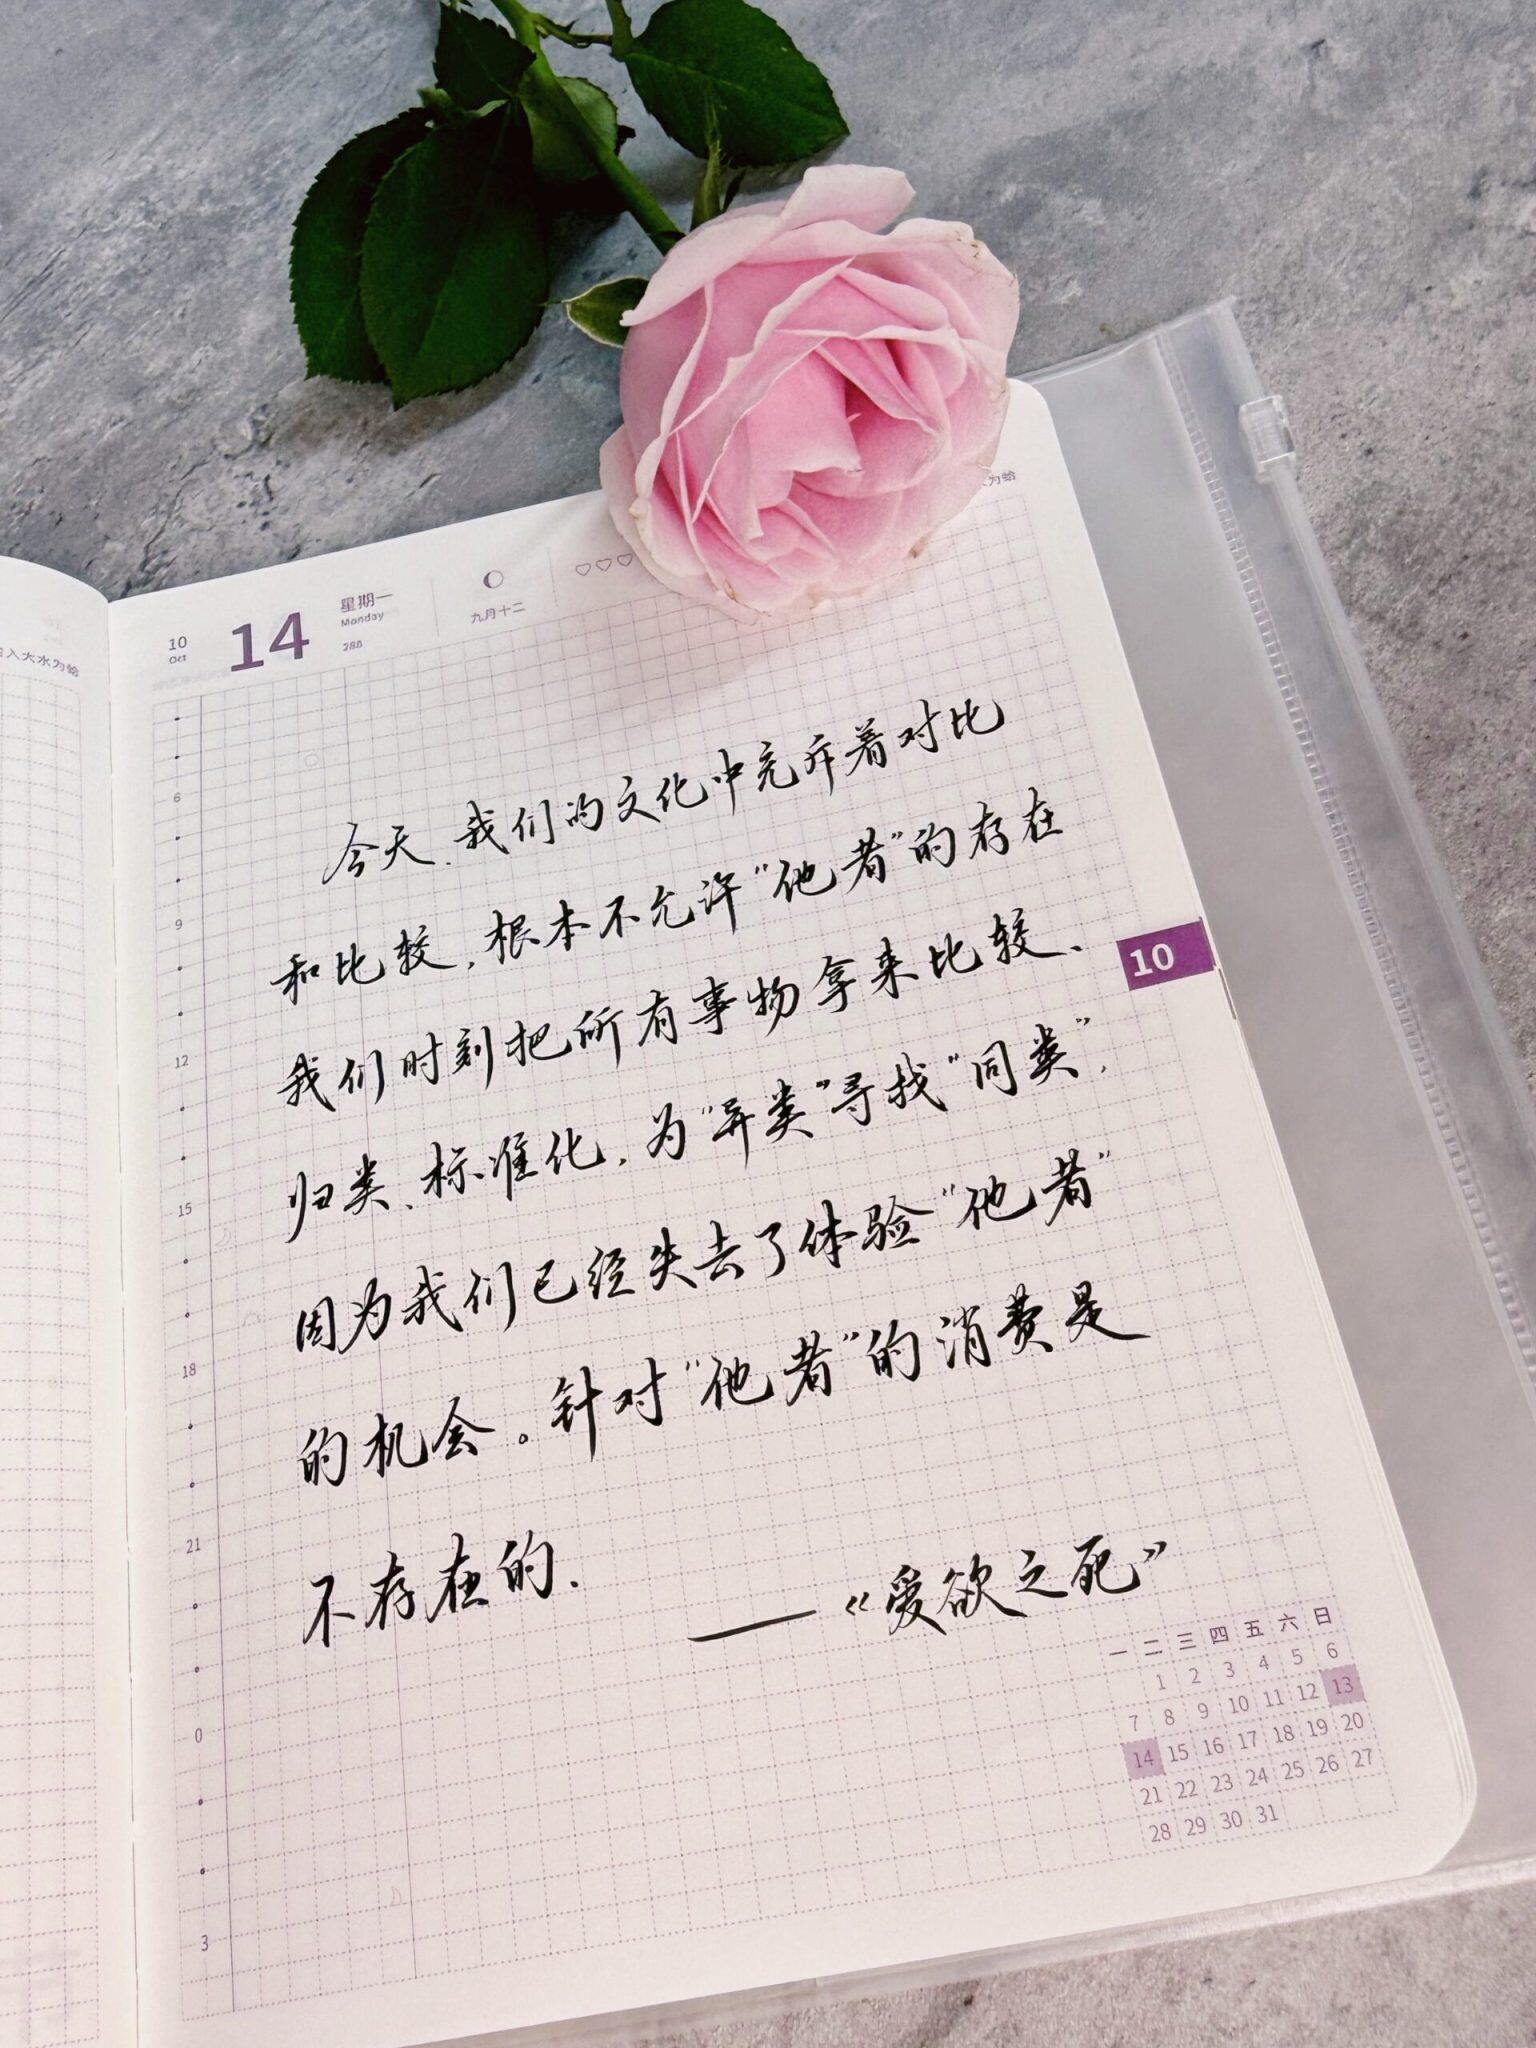 入大水为蛤
10
Oct
14
星期一
Monday
288
九月十二
水为蛤
今天、我们的文化中充斥着对比
和比较，根本不允许“他者”的存在
我们时刻把所有事物拿来比较、
归类、标准化，为“异类”寻找“同类”，
因为我们已经失去了体验“他者”
的机会。针对“他者”的消费是
不存在的.
——《爱欲之死》
6
9
12
15
18
21
0
3
10
一 二 三 四 五 六 日
1 2 3 4 5 6
7 8 9 10 11 12 13
14 15 16 17 18 19 20
21 22 23 24 25 26 27
28 29 30 31